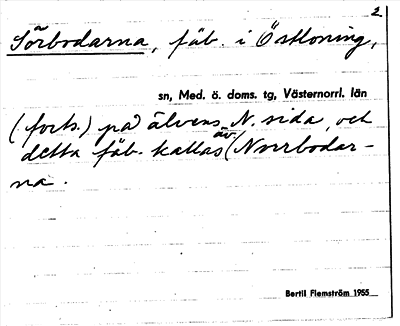 2
Sörbodarna, fäb. i Östloning,
sn, Med. ö. doms. tg, Västernorrl. län
(forts.) på älvens N. sida, och
detta fäb. kallas (äv. Norrbodar-
na.
Bertil Flemström 1955